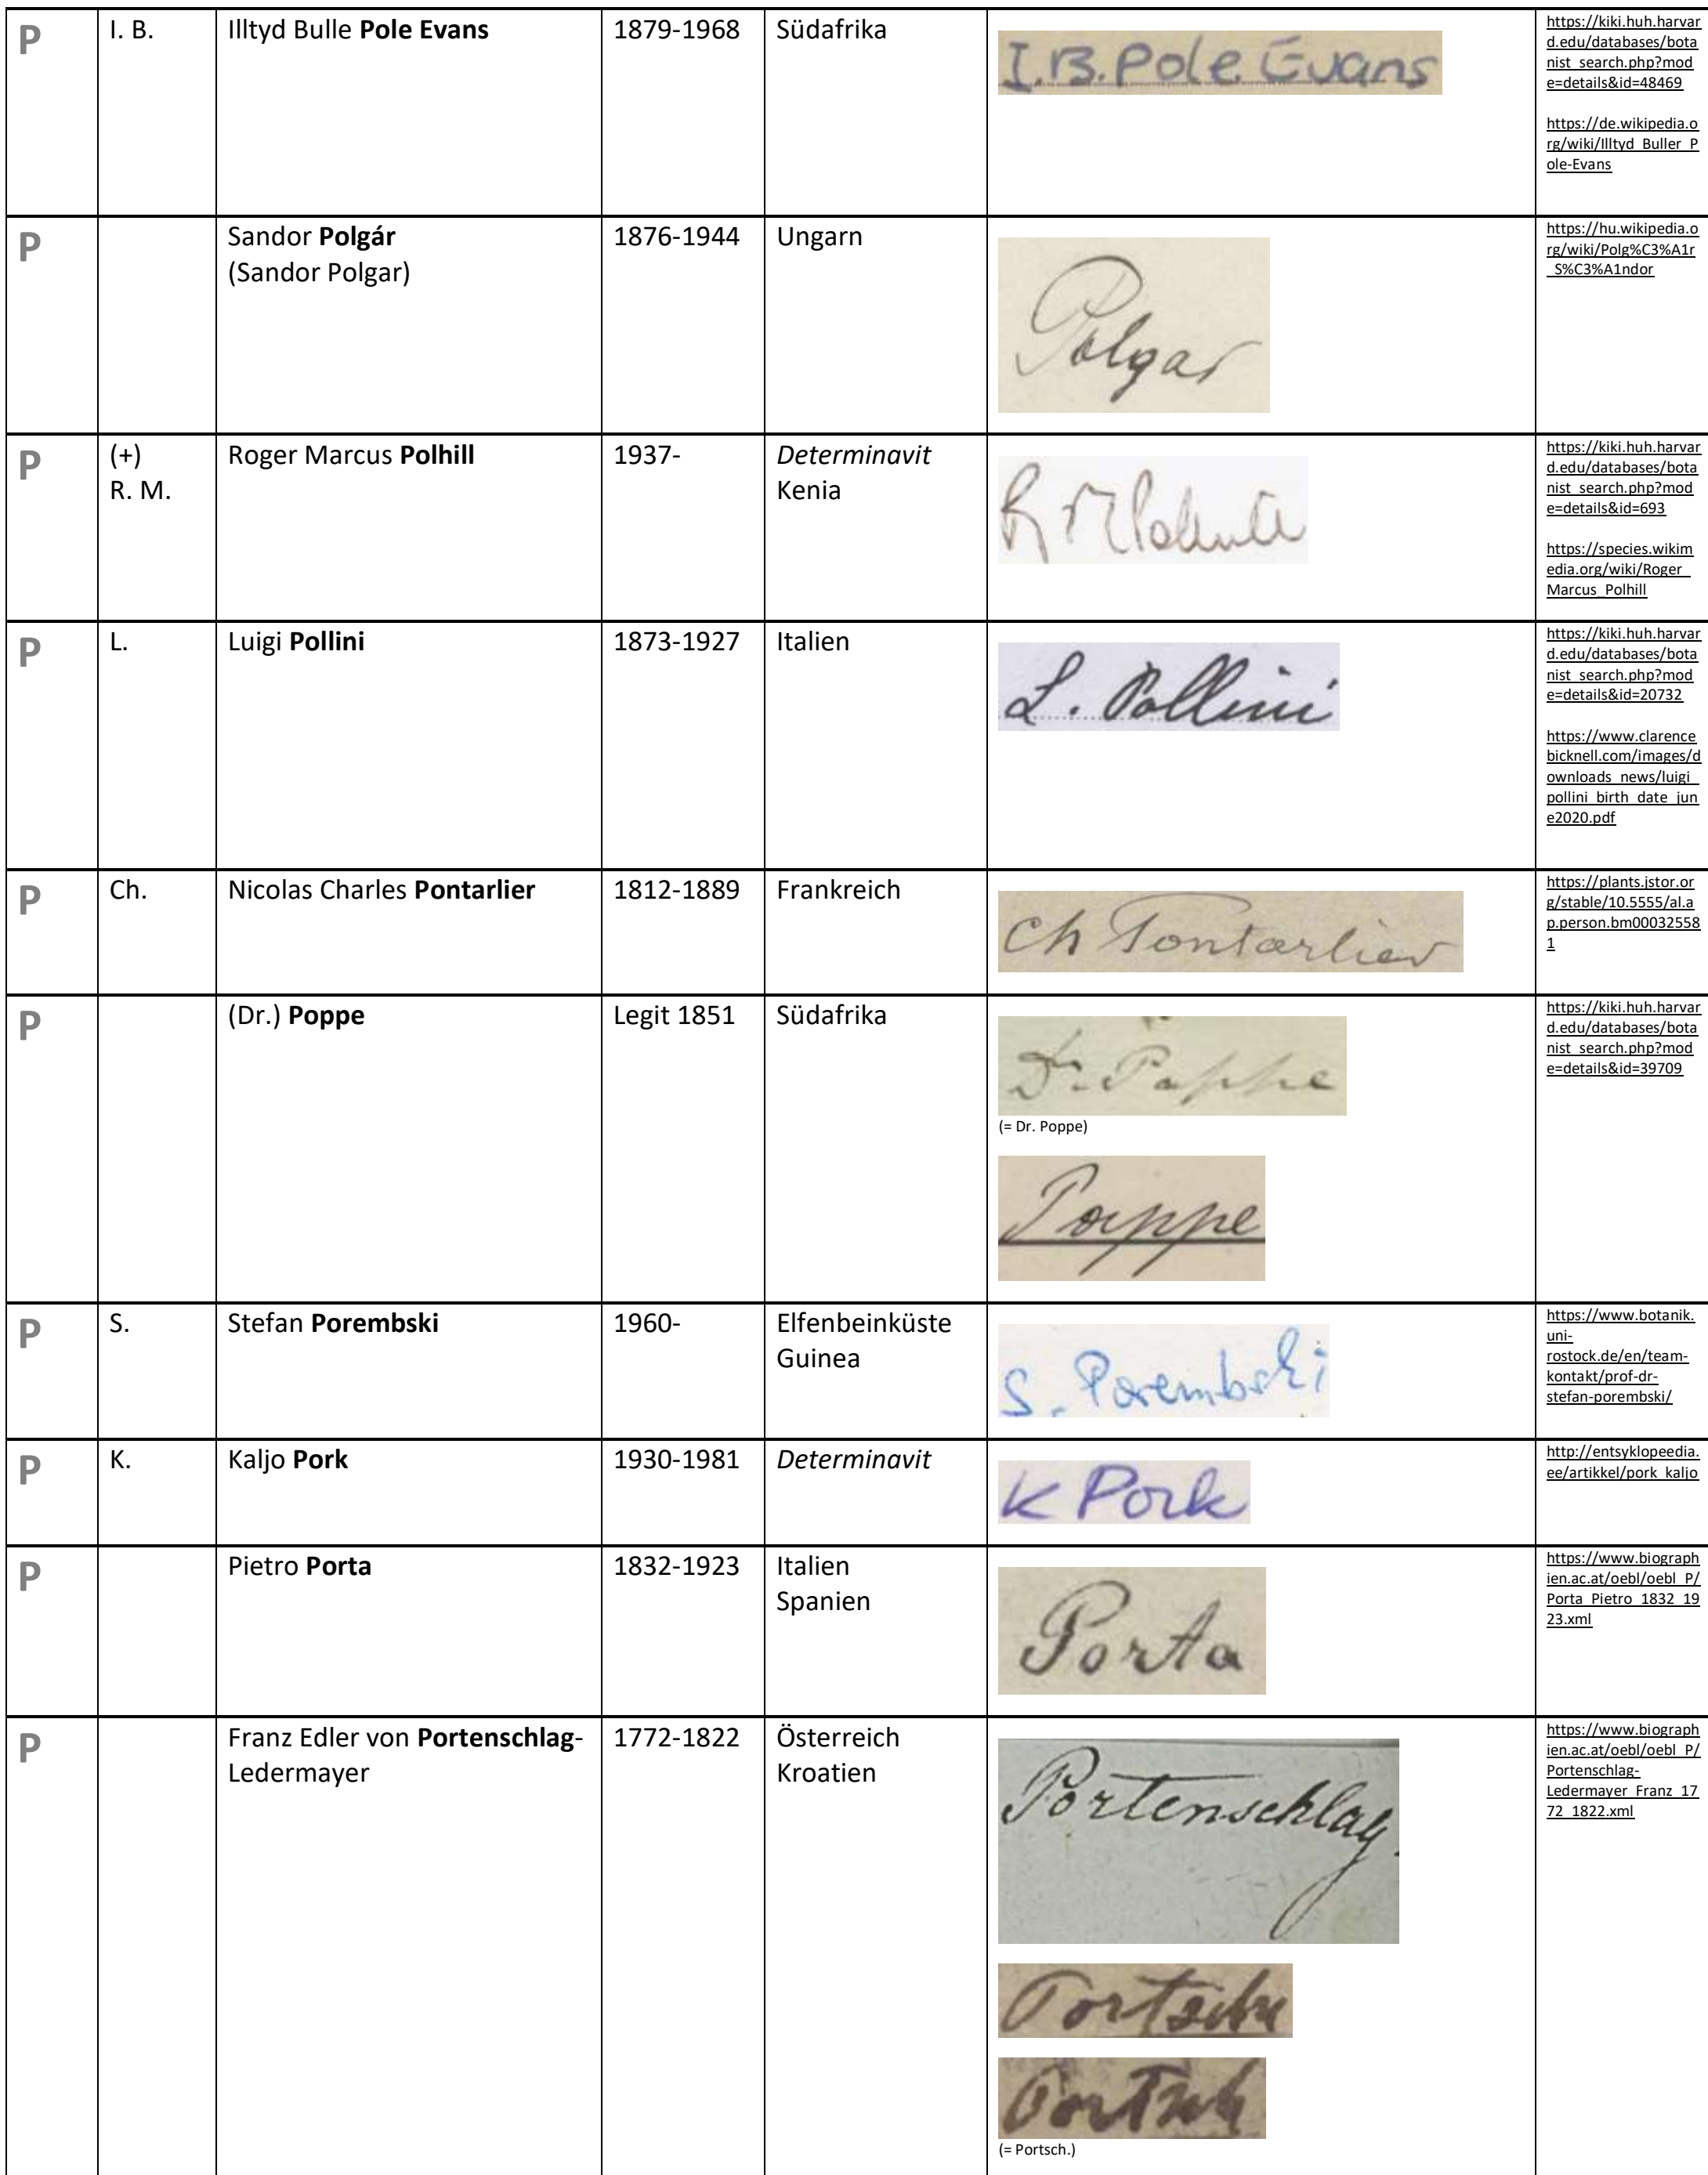 P I. B. Illtyd Bulle Pole Evans 1879-1968 Südafrika I.B. Pole Evans https://kiki.huh.harvar
d.edu/databases/bota
nist_search.php?mod
e=details&id=48469
https://de.wikipedia.o
rg/wiki/Illtyd_Buller_P
ole-Evans
P Sandor Polgár 1876-1944 Ungarn Polgar https://hu.wikipedia.o
(Sandor Polgar) rg/wiki/Polg%C3%A1r
_S%C3%A1ndor
P (+) Roger Marcus Polhill 1937- Determinavit https://kiki.huh.harvar
R. M. Kenia R M Polhill d.edu/databases/bota
nist_search.php?mod
e=details&id=693
https://species.wikim
edia.org/wiki/Roger_
Marcus_Polhill
P L. Luigi Pollini 1873-1927 Italien L. Pollini https://kiki.huh.harvar
d.edu/databases/bota
nist_search.php?mod
e=details&id=20732
https://www.clarence
bicknell.com/images/d
ownloads_news/luigi_
pollini_birth_date_jun
e2020.pdf
P Ch. Nicolas Charles Pontarlier 1812-1889 Frankreich Ch Pontarlier https://plants.jstor.or
g/stable/10.5555/al.a
p.person.bm00032558
1
P (Dr.) Poppe Legit 1851 Südafrika Dr. Pappe https://kiki.huh.harvar
d.edu/databases/bota
nist_search.php?mod
e=details&id=39709
(= Dr. Poppe)
Poppe
P S. Stefan Porembski 1960- Elfenbeinküste S. Porembski https://www.botanik.
Guinea uni-
rostock.de/en/team-
kontakt/prof-dr-
stefan-porembski/
P K. Kaljo Pork 1930-1981 Determinavit K Pork http://entsyklopeedia.
ee/artikkel/pork_kaljo
P Pietro Porta 1832-1923 Italien Porta https://www.biograph
Spanien ien.ac.at/oebl/oebl_P/
Porta_Pietro_1832_19
23.xml
P Franz Edler von Portenschlag- 1772-1822 Österreich Portenschlag. https://www.biograph
Ledermayer Kroatien ien.ac.at/oebl/oebl_P/
Portenschlag-
Ledermayer_Franz_17
72_1822.xml
Portsch
Portsch
(= Portsch.)